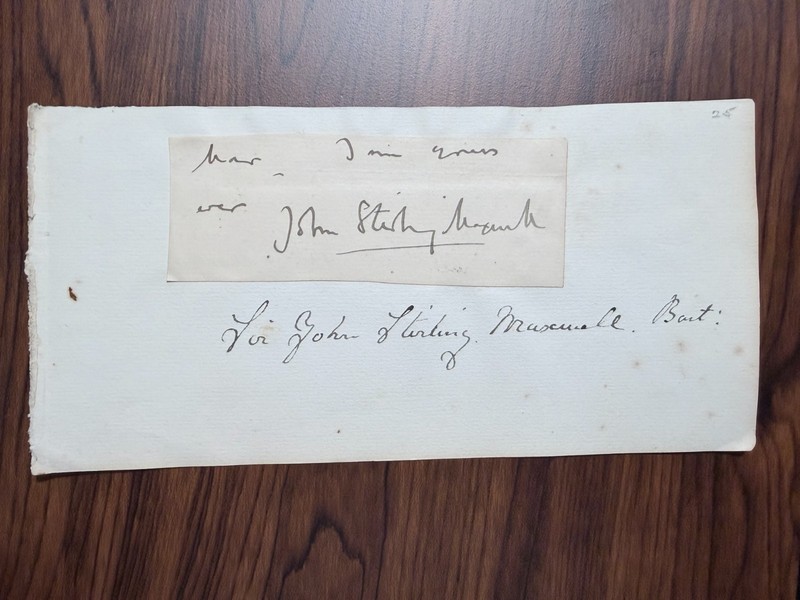 25
I am yours
ever John Stirling Maxwell
Sir John Stirling Maxwell. Bart: